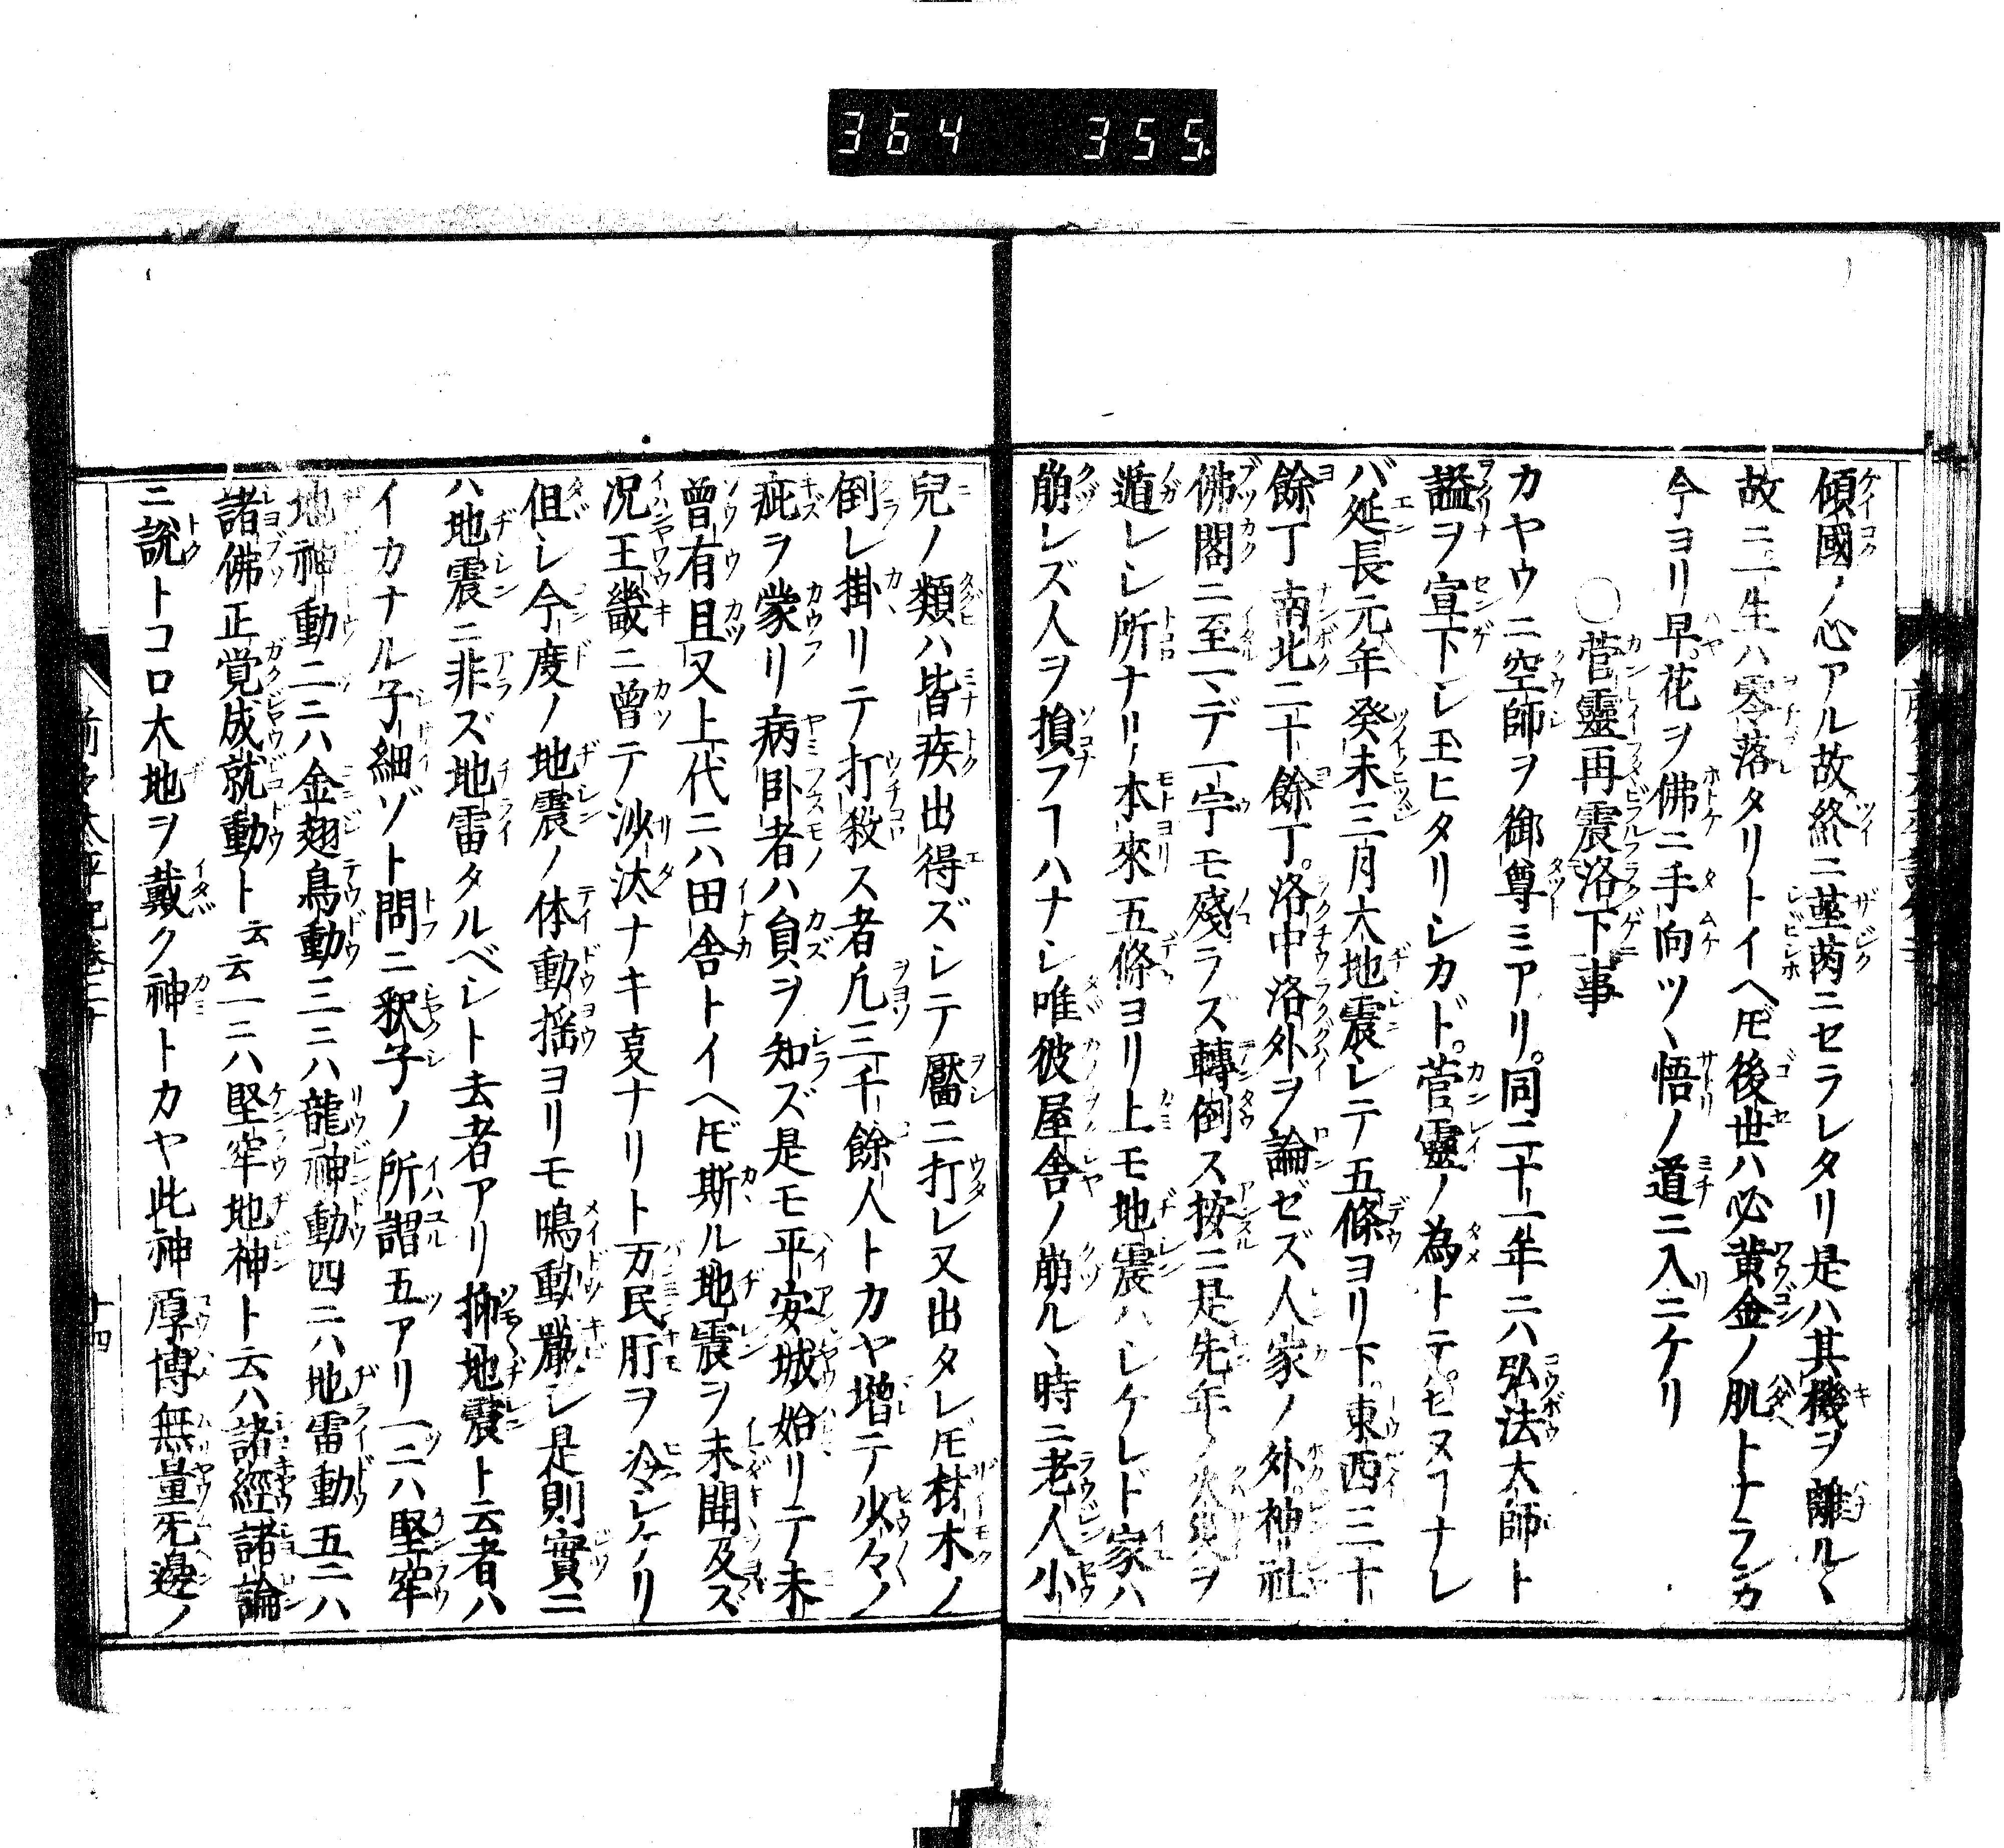 364 355
傾國ノ心アル故終ニ莖芮ニセラレタリ是ハ其機ヲ離ル〻
故ニ一生ハ零落タリトイヘ𪜈後世ハ必黄金ノ肌トナランカ
今ヨリ早花ヲ佛ニ手向ツヽ悟ノ道ニ入ニケリ
〇菅靈再震洛下事
カヤウニ空師ヲ御尊ミアリ。同二十一年ニハ弘法大師ト
謚ヲ宣下シ玉ヒタリシカド。菅靈ノ為トテ。ヒヌヿナレ
バ延長元年癸未三月大地震シテ五條ヨリ下東西三十
餘丁南北二十餘丁。洛中洛外ヲ論ゼズ人家ノ外神社
佛閣ニ至マデ一宇モ殘ラズ轉倒ス按ニ是先年ノ火災ヲ
遁レシ所ナリ本來五條ヨリ上モ地震ハシケレド家ハ
崩レズ人ヲ損フヿハナシ唯彼屋舎ノ崩ルヽ時ニ老人小
兒ノ類ハ皆疾出得ズシテ壓ニ打レ又出タレ𪜈材木ノ
倒レ掛リテ打殺ス者凡三千餘人トカヤ増テ少々ノ
疵ヲ蒙リ病卧者ハ貟ヲ知ズ是モ平安城始リテ未
曾有且又上代ニハ田舎トイヘ𪜈斯ル地震ヲ未聞及ズ
况王畿ニ曾テ沙汰ナキ㕝ナリト万民肝ヲ冷シケリ
但シ今度ノ地震ノ体動揺ヨリモ鳴動嚴シ是則實ニ
ハ地震ニ非ズ地雷タルベシト去者アリ抑地震ト云者ハ
イカナル子細ゾト問ニ釈子ノ所謂五アリ一ニハ堅牢
地神動二ニハ金翅鳥動三ニハ龍神動四ニハ地雷動五ニハ
諸佛正覚成就動ト云云一ニハ堅牢地神ト云ハ諸經諸論
ニ説トコロ大地ヲ戴ク神トカヤ此神厚博無量无邊ノ
十四